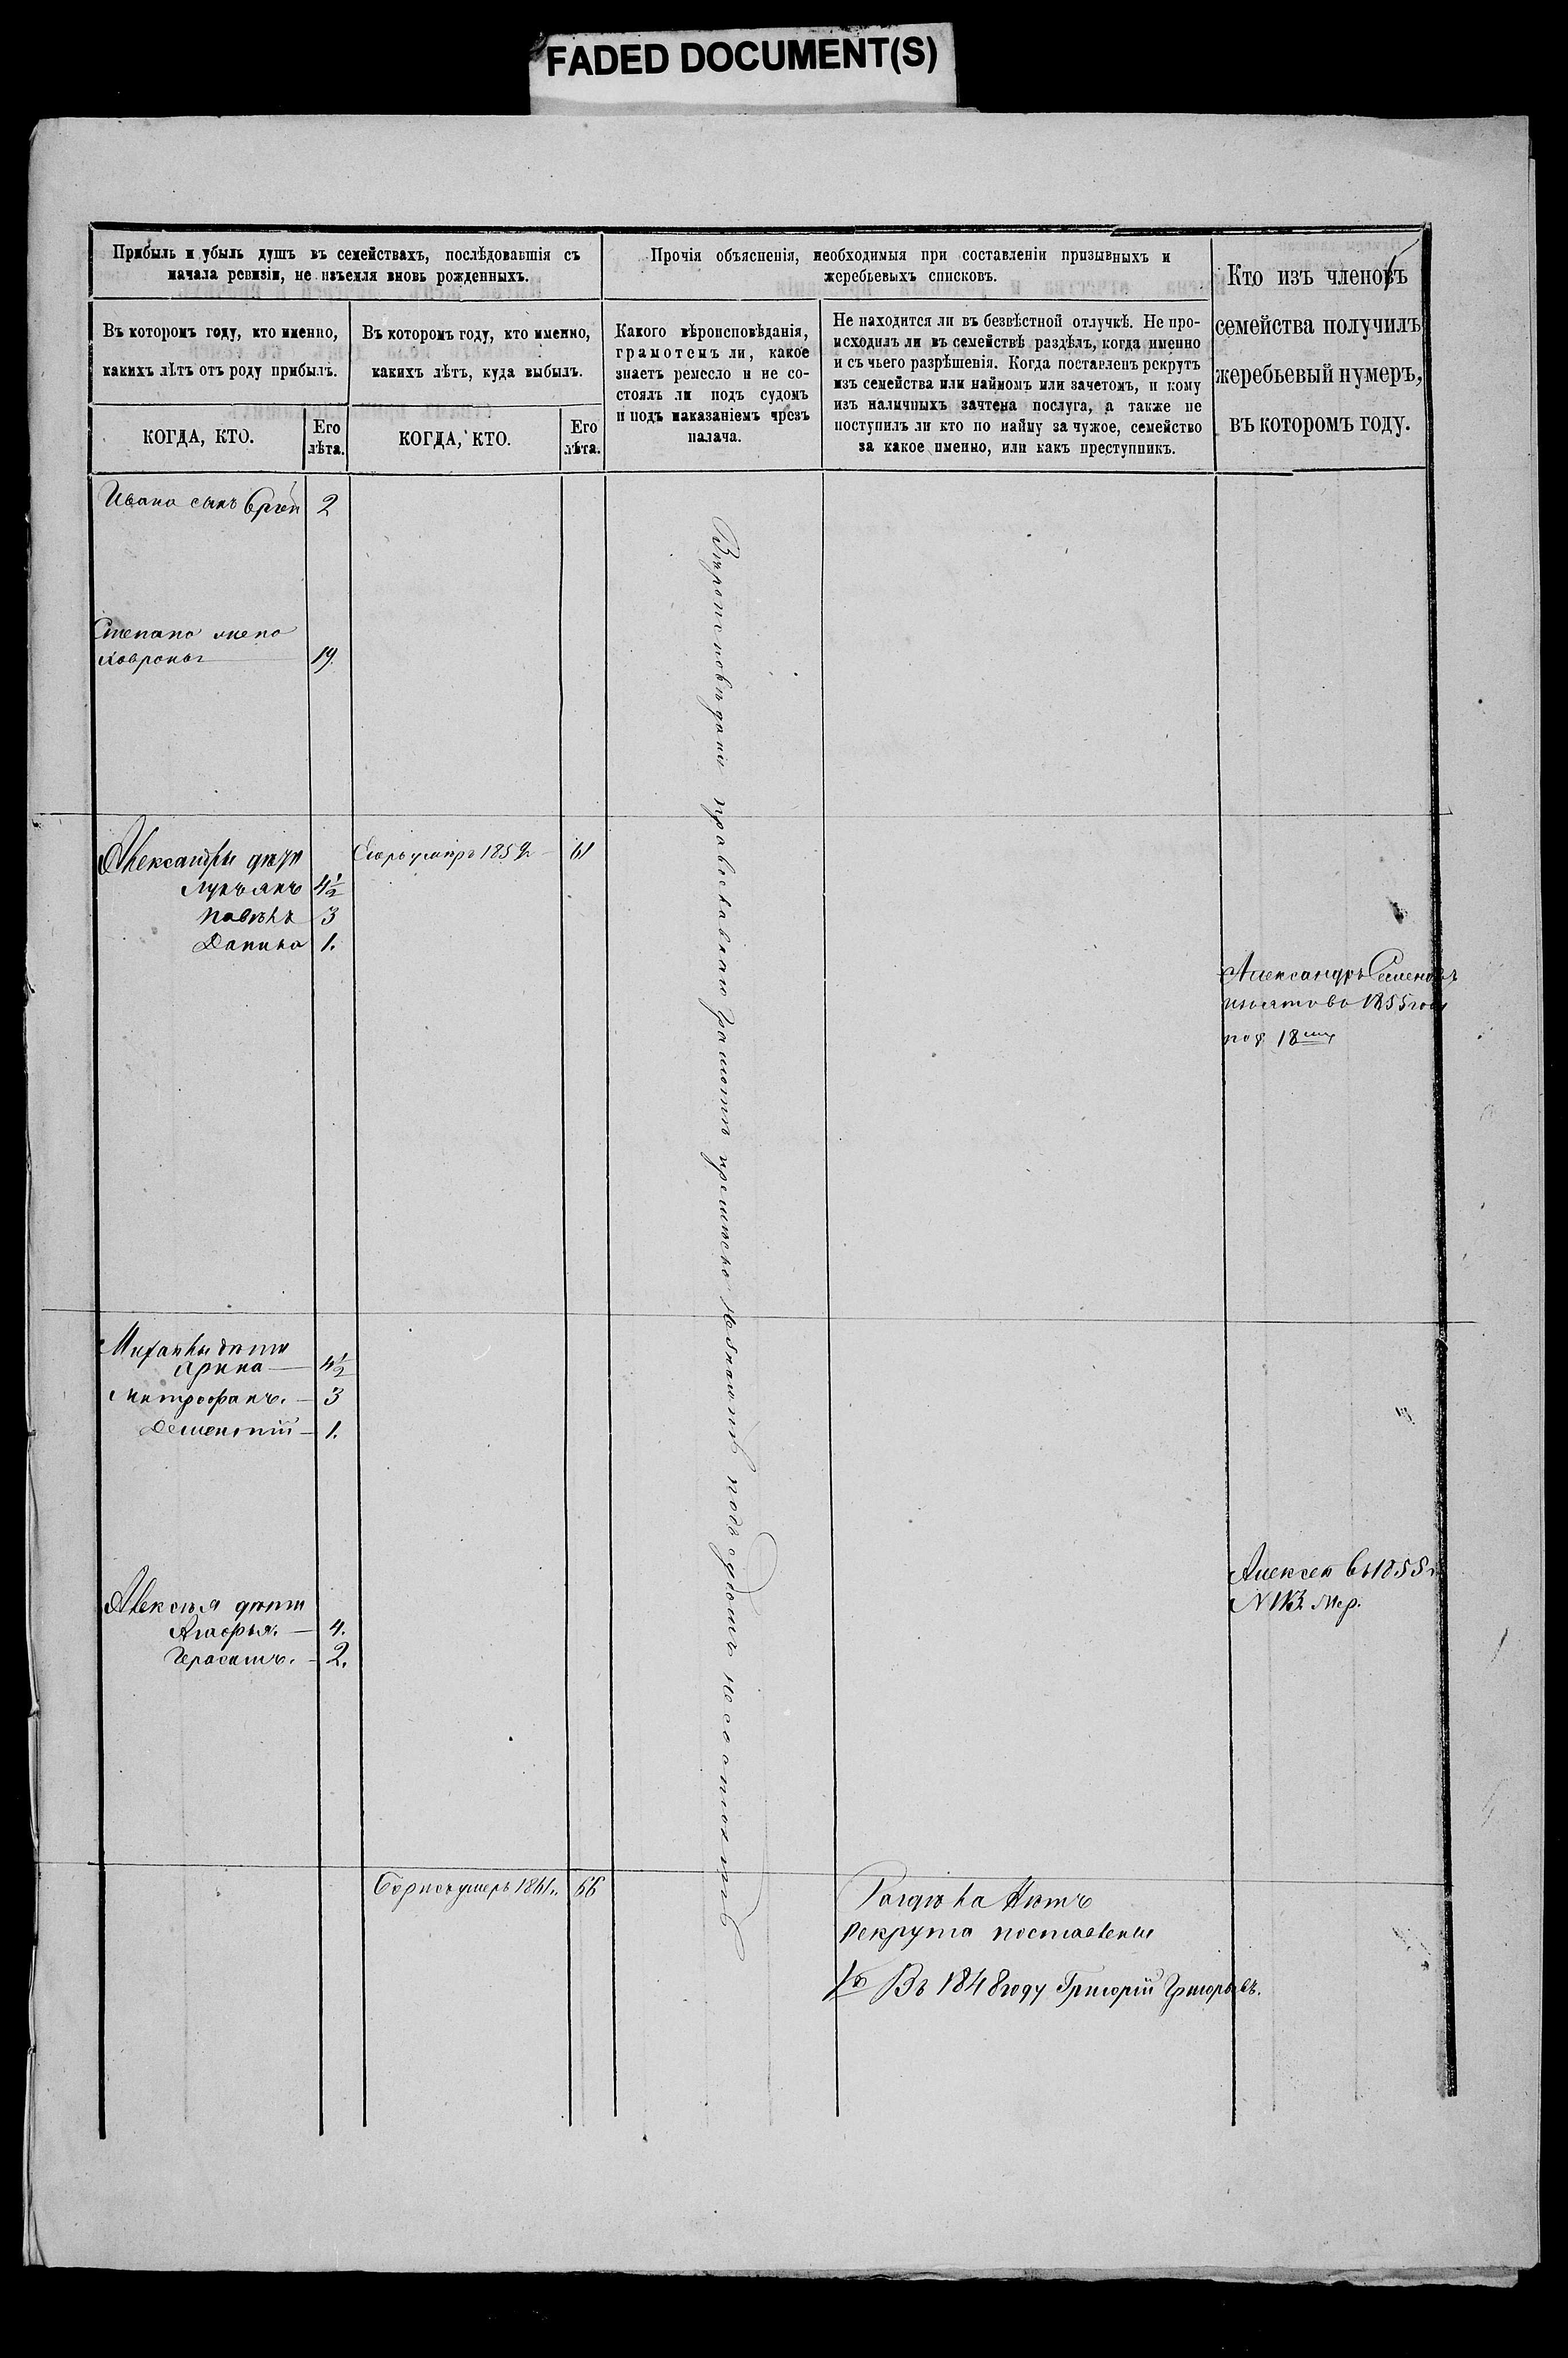 FADED DOCUMENT(S)
Прибыль и убыль душъ въ семействахъ, послѣдовавшія съ
начала ревизіи, не изъемля вновь рожденныхъ.
Въ которомъ году, кто именно,
какихъ лѣтъ отъ роду прибылъ.
КОГДА, КТО.
Его
лѣта.
Въ которомъ году, кто именно,
какихъ лѣтъ, куда выбылъ.
КОГДА, КТО.
Его
лѣта.
Прочія объясненія, необходимыя при составленіи призывныхъ и
жеребьевыхъ списковъ.
Какого вѣроисповѣданія,
грамотенъ ли, какое
знаетъ ремесло и не со-
стоялъ ли подъ судомъ
и подъ наказаніемъ чрезъ
палача.
Не находится ли въ безвѣстной отлучкѣ. Не про-
исходилъ ли въ семействѣ раздѣлъ, когда именно
и съ чьего разрѣшенія. Когда поставленъ рекрутъ
изъ семейства или наймомъ или зачетомъ, и кому
изъ наличныхъ зачтена послуга, а также не
поступилъ ли кто по найму за чужое, семейство
за какое именно, или какъ преступникъ.
Кто изъ членовъ
семейства получилъ
жеребьевый нумеръ,
въ которомъ году.
Ивана сынъ 2
Степана жена
19.
Александры дѣти
умиръ 1852 61
Лукъянъ 4½
Павелъ 3
Данила 1.
Александръ Семеновъ
1855 года
под 18
Вѣроисповѣданія православнаго грамотѣ ремесла незнаютъ подъ судомъ несостоятъ
Михаилы дѣти
Арина 4½
Митрофанъ. 3
Дементій 1.
Алексей въ 1855 г.
N 113 мер.
Алексѣя дѣти
Агафья. 4.
Герасимъ. 2.
Борисъ умеръ 1861. 66
Раздѣла Нѣтъ
Рекрута поставлены
1е Въ 1848 году Григорій Григорьевъ.